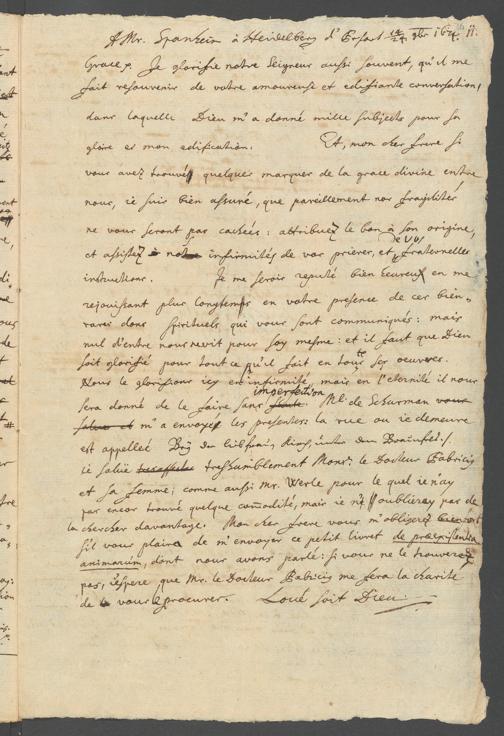 A Mr. Spanheim à Heidelberg d'Erfort 14/24 9br. 1674. 11.
Grace. Je glorifie notre Seigneur aussi souvent, qu'il me
fait resouvenir de votre amoureuse et edifiante conversation,
dans laquelle Dieu m'a donné mille subjects pour sa
gloire et mon edification. Et, mon cher frere si
vous avez trouvé quelques marques de la grace divine entre
nous, ie suis bien assuré, que pareillement nos fragilités
ne vous seront pas cachées: attribuez le bon à son origine,
et assistez à nos infirmités de vos prieres, et de vos fraternelles
instructions. Je me serois reputé bien heureux en me
rejouissant plus longtemps en votre presence de ces bien
rares dons spirituels qui vous sont communiqués: mais
nul d'entre nous ne vit pour soy mesme: et il faut que Dieu
soit glorifié pour tout ce qu'il fait en toutes ses oeuvres.
Nous le glorifions icy en infirmité, mais en l'eternité il nous
sera donné de le faire sans imperfection. Ml. de Schurman vous
salue et m'a envoyé les presentes: la rue ou ie demeure
est appellée
ie salue tres humblement Monsr. le Docteur Fabricius
et sa femme; comme aussi Mr. Werle pour le quel ie n'ay
pas encor trouvé quelque commodité, mais ie n'oublieray pas de
la chercher davantage. Mon cher frere vous m'obligerez
s'il vous plaira de m'envoyer ce petit livret de præexistentia
animarum, dont nous avons parlé: si vous ne le trouverez
pas, i'espere que Mr. le Docteur Fabricius me fera la charité
de vous le procurer. Loué soit Dieu.